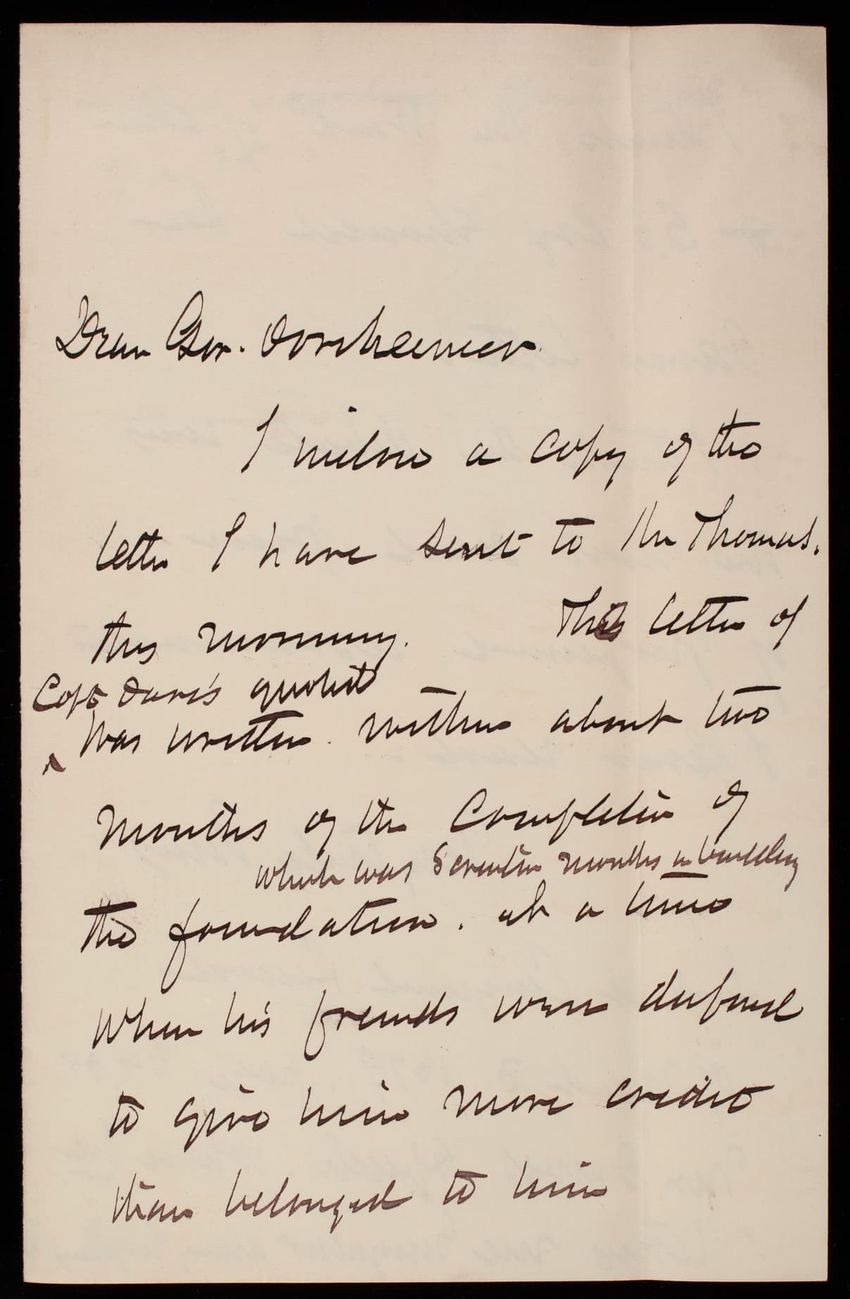 Dear Gov. Dorsheimer
I enclose a copy of the
letter I have sent to Mr Thomas.
this morning. This letter of
Capt Davis quoted
was written within about two
months of the completion of
which was seventeen months in building
the foundation. at a time
when his friends were
to give him more credit
than belonged to him